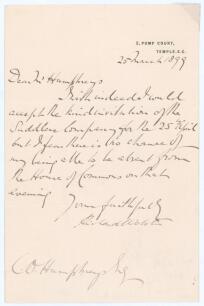 2, PUMP COURT,
TEMPLE, E.C.
25 March 1899
Dear Mr Humphreys
I wish indeed I could
accept the kind invitation of the
Saddlers Company for the 25 April
but I fear there is no chance of
my being able to be absent from
the House of Commons on that
evening
Yours faithfully
C O Humphreys Esq